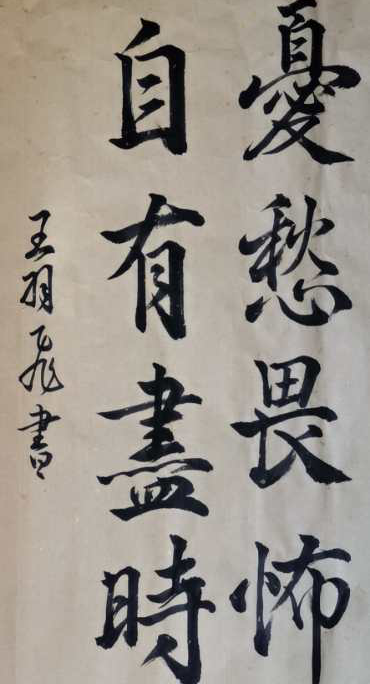 憂愁畏怖
自有盡時
王羽飛書